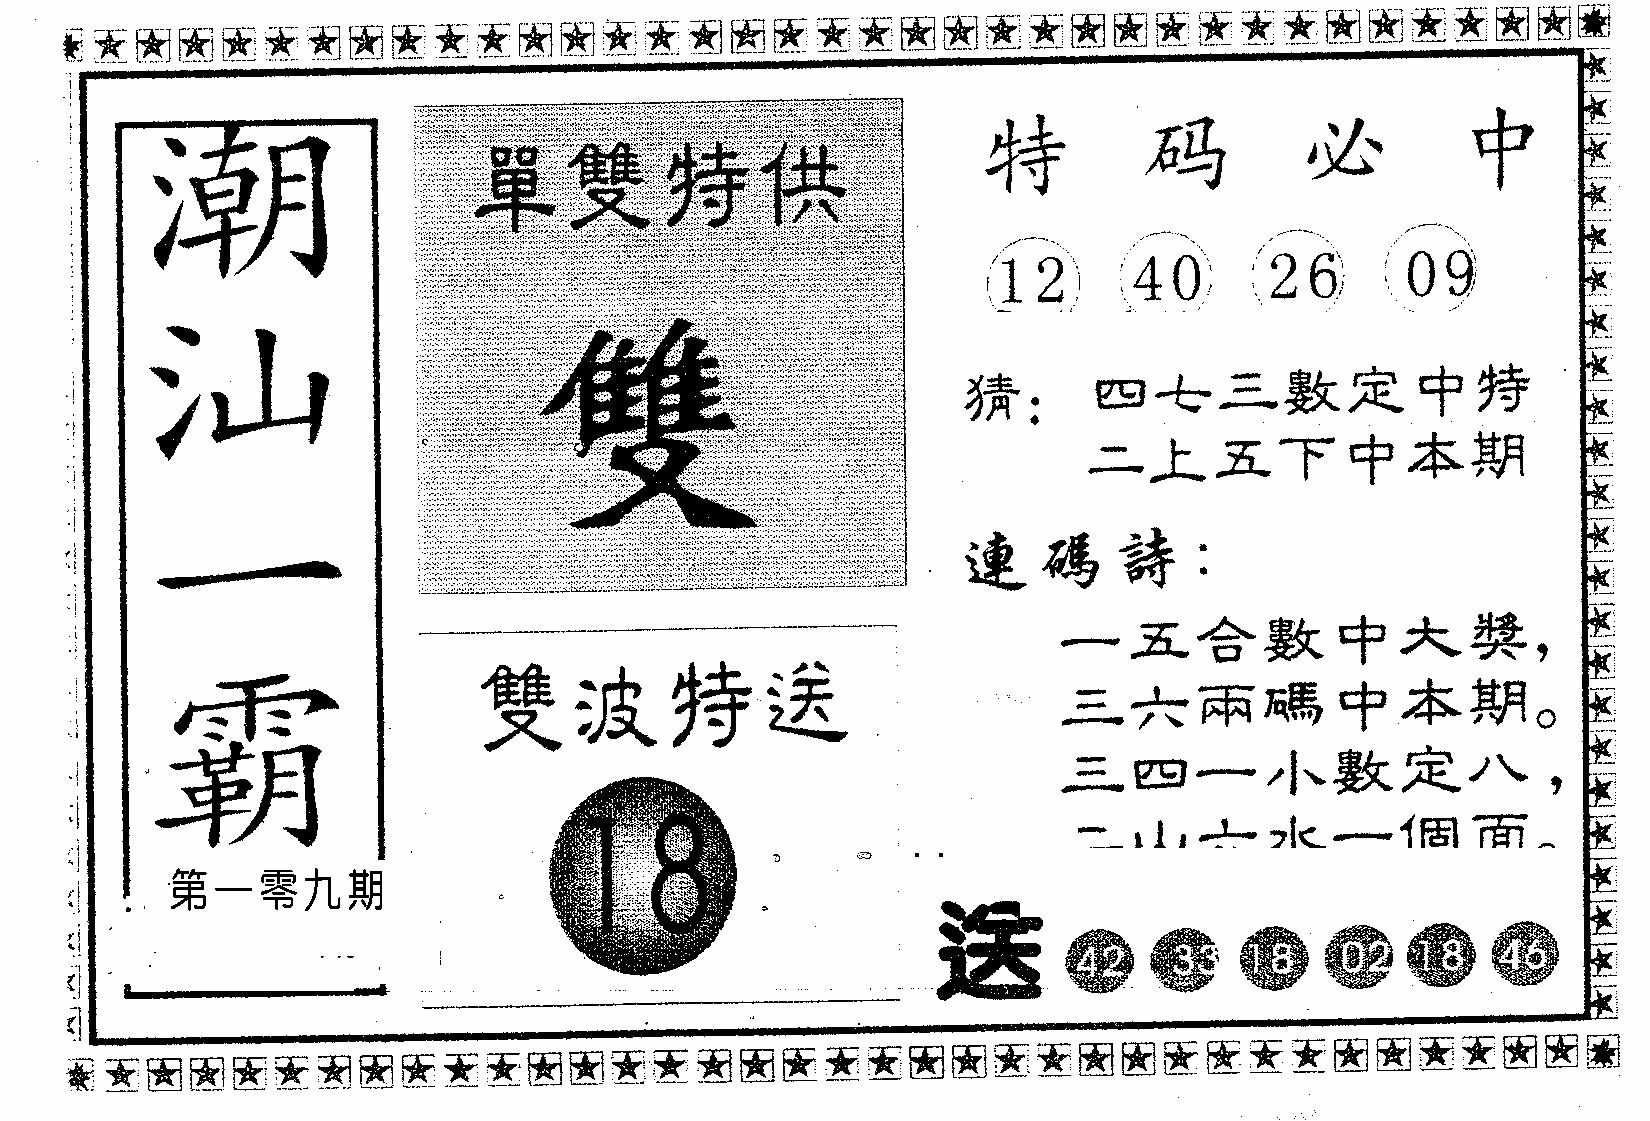 潮汕一霸
第一零九期
單雙特供
雙
雙波特送
18
特码必中
12 40 26 09
猜：四七三數定中特
二上五下中本期
連碼詩：
一五合數中大獎，
三六兩碼中本期。
三四一小數定八，
送 42 33 18 02 18 46